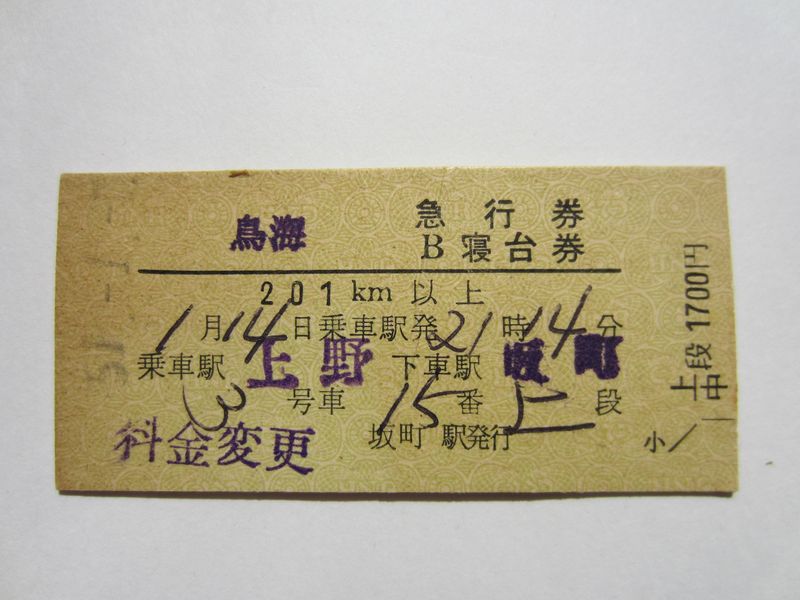 鳥海 急行券
B寝台券
201km以上
1月14日乗車駅発21時14分
乗車駅 上野 下車駅
3号車 15番 上段
料金変更 坂町駅発行
上中段 1700円
小